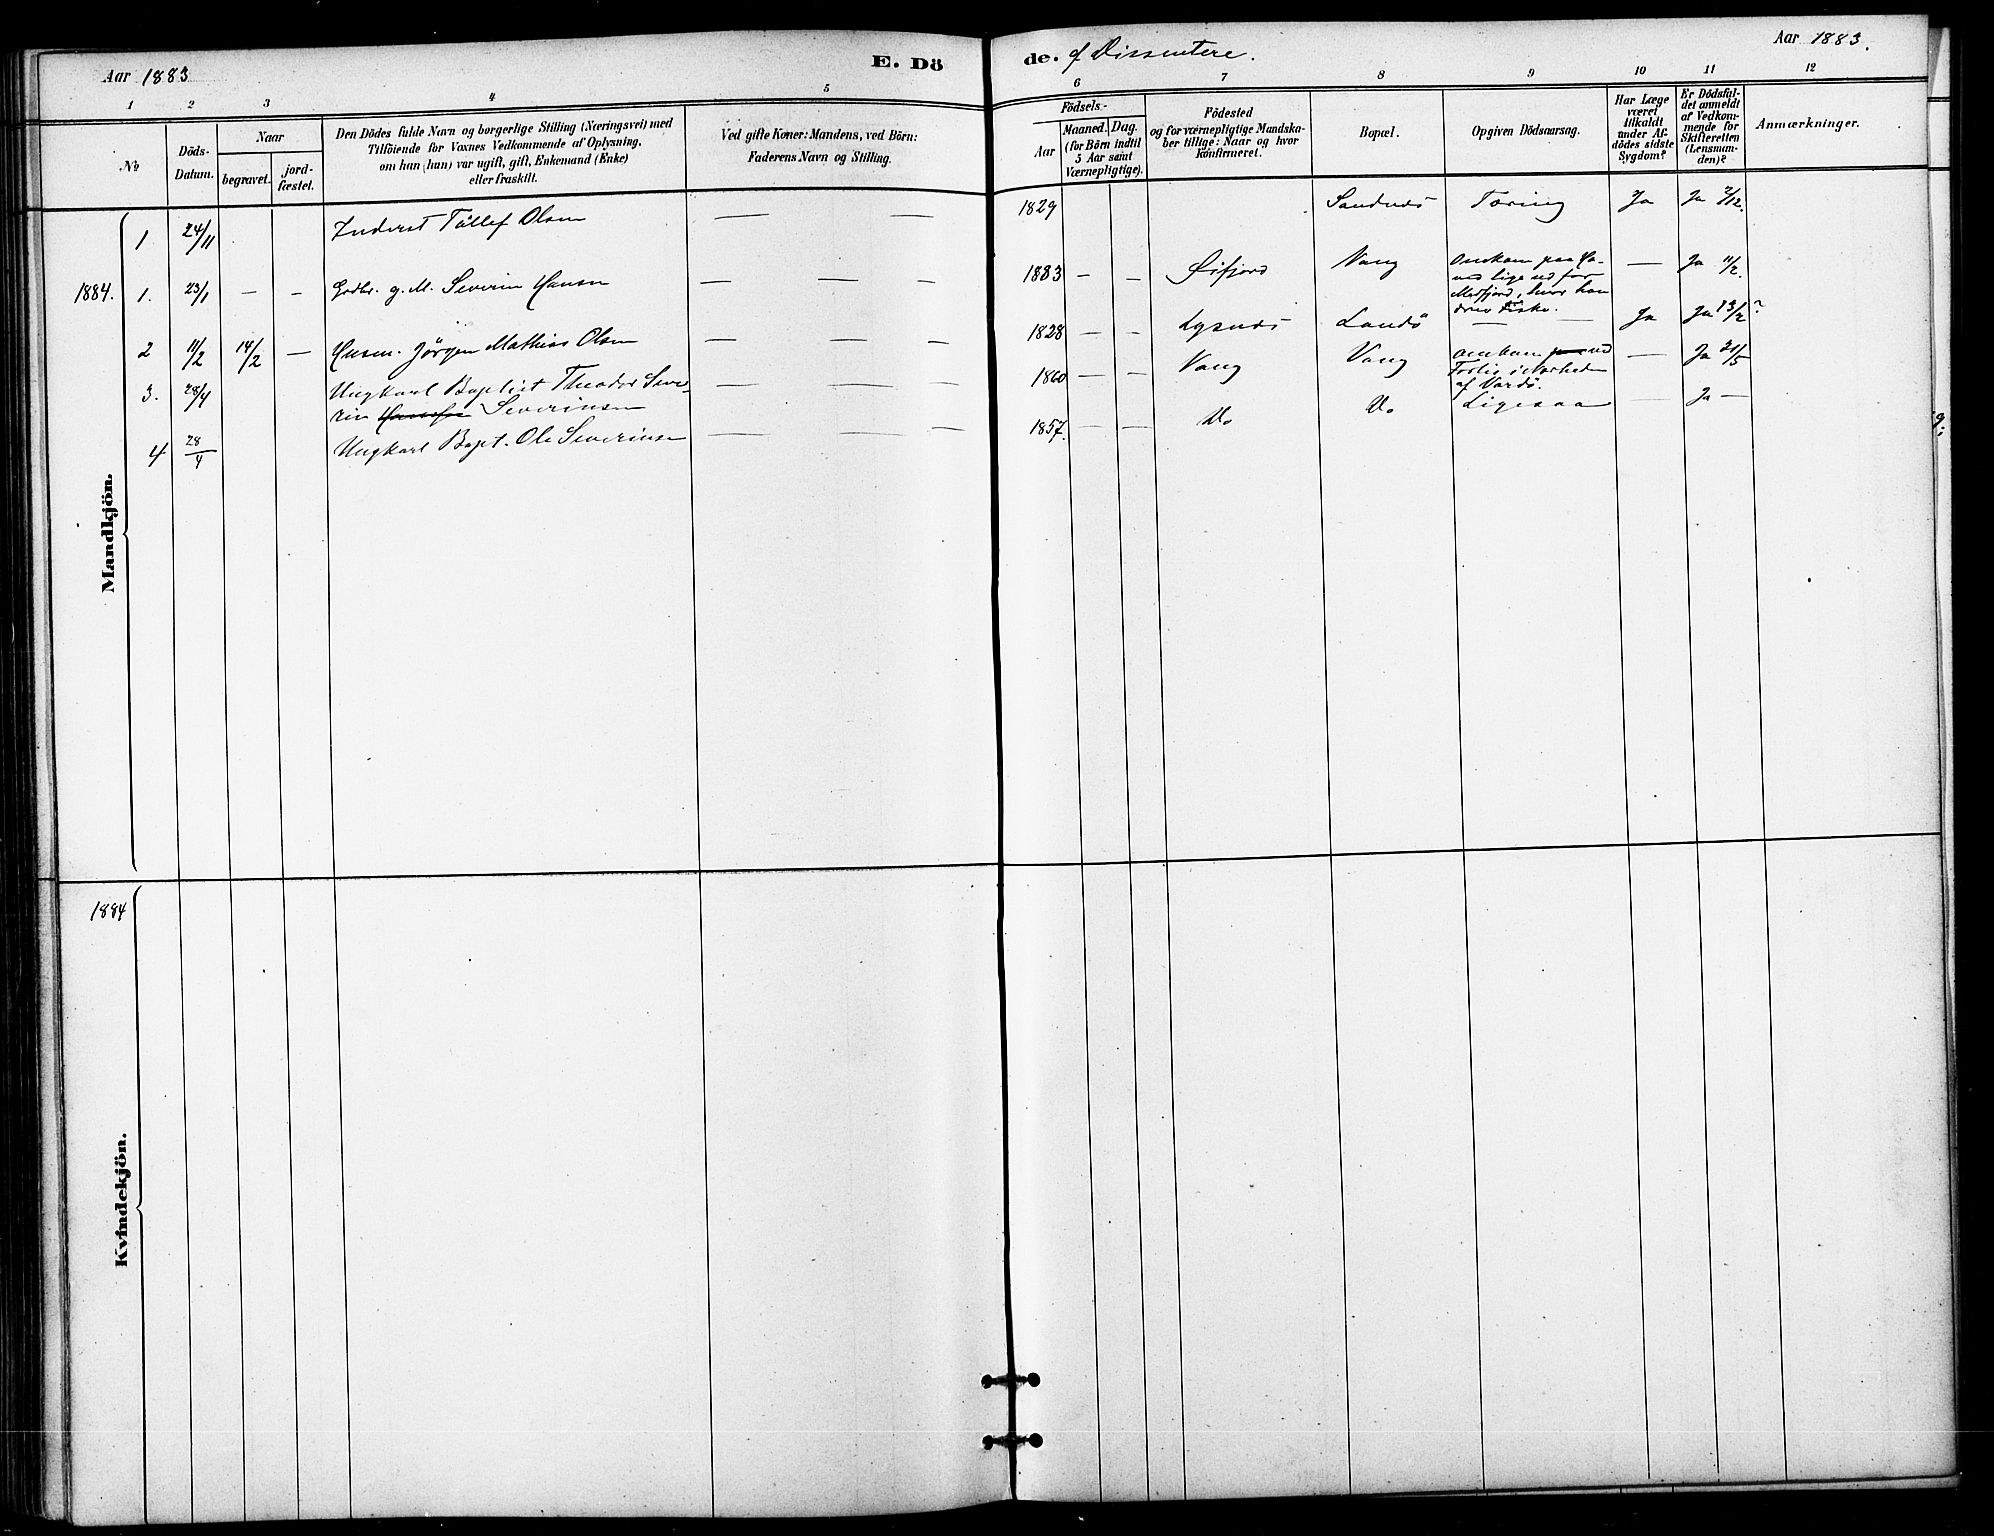 Aar 1883
E. Dö
de. af Dissentere.
Aar 1883.
1 2 3 4 5 6 7 8 9 10 11 12
No
Döds-
Datum.
Naar
begravet.
jord-
fæstet.
Den Dödes fulde Navn og borgerlige Stilling (Næringsvei) med
Tilföiende for Voxnes Vedkommende af Oplysning,
om han (hun) var ugift, gift, Enkemand (Enke)
eller fraskilt.
Ved gifte Koner: Mandens, ved Börn:
Faderens Navn og Stilling.
Födsels-
Aar
Maaned. Dag.
(for Börn indtil
5 Aar samt
Værnepligtige).
Födested
og for værnepligtige Mandska-
ber tillige: Naar og hvor
konfirmeret.
Bopæl.
Opgiven Dödsaarsag.
Har Læge
været
tilkaldt
under Af-
dödes sidste
Sygdom?
Er Dödsfal-
det anmeldt
af Vedkom-
mende for
Skifteretten
(Lensman-
den)?
Anmærkninger.
Mandkjön.
1 24/11 Inderst Tollef Olsen — — 1829 Sandnes Tæring Ja Ja 7/12.
1884. 1. 23/1 — — Gdbr. g. M. Severin Hansen — — — 1883 — — Øifjord Vang Omkom paa Ha- — Ja 11/2.
vet lige ud for
Mefjord, hvor han
drev Fiske.
2 11/2 14/2 — Husm. Jörgen Mathias Olsen — — — 1828 — — Lysnes Landö — — Ja Ja 13/2?
3. 28/4 Ungkarl Baptist Theodor Seve- — — — 1860 — — Vang Vang omkom ved — Ja 21/5
rin Severinsen
Forlis i Nærheden
af Vardö.
4 28/4 Ungkarl Bapt. Ole Severinsen — — — 1857. — — Do Do Ligesaa — Ja —
1884
Kvindekjön.